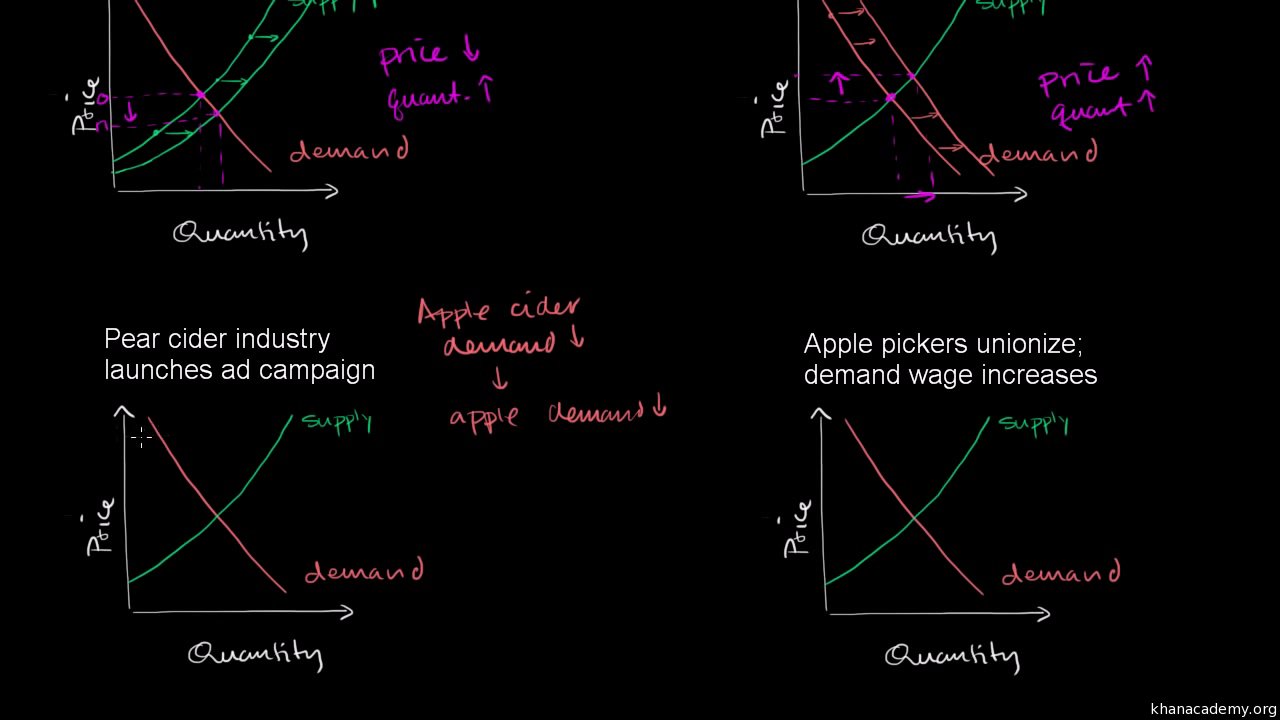 supply
price ↓
quant. ↑
Price
o
n
demand
Quantity
supply
price ↑
quant ↑
Price
demand
Quantity
Pear cider industry
launches ad campaign
Apple cider
demand ↓
↓
apple demand ↓
supply
Price
demand
Quantity
Apple pickers unionize;
demand wage increases
supply
Price
demand
Quantity
khanacademy.org